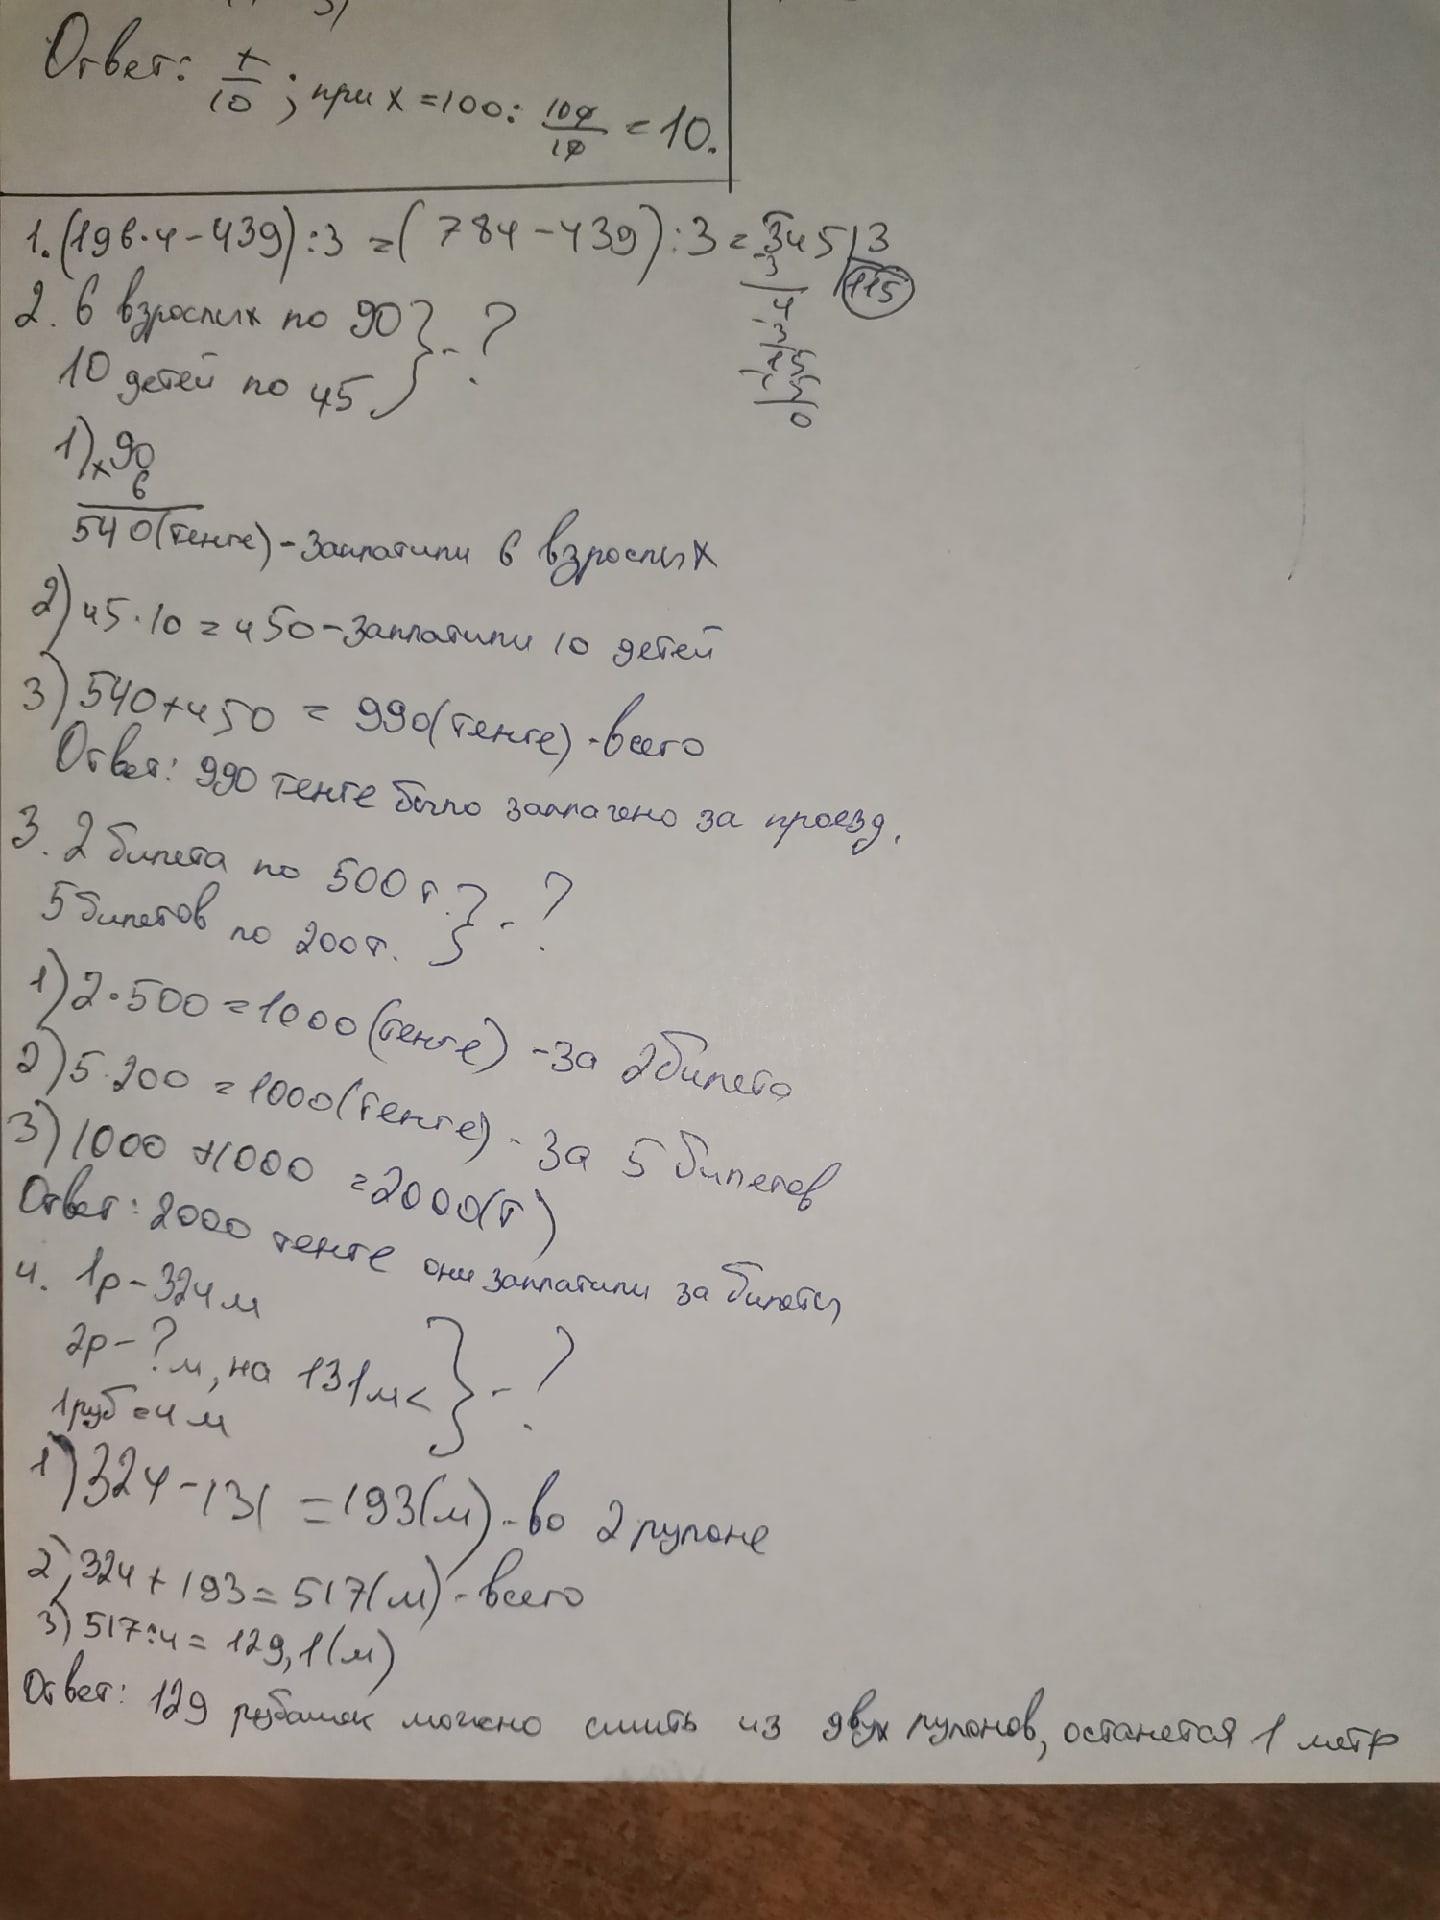 Ответ: x/10; при x=100: 100/10 = 10.
1. (196·4-439):3 = (784-439):3 = 345|3
-3 115
4
-3
15
-15
0
2. 6 взрослых по 90 } - ?
10 детей по 45
1) ×90
6
540(тенге)-заплатили 6 взрослых
2) 45·10=450-заплатили 10 детей
3) 540+450 = 990(тенге)-всего
Ответ: 990 тенге было заплачено за проезд.
3. 2 билета по 500т. } - ?
5 билетов по 200т.
1) 2·500=1000(тенге) -за 2 билета
2) 5·200=1000(тенге)-за 5 билетов
3) 1000+1000=2000(т)
Ответ: 2000 тенге они заплатили за билеты
4. 1р-324м
2р-?м, на 131м< } - ?
1руб=4м
1) 324-131=193(м)-во 2 рулоне
2) 324+193=517(м)-всего
3) 517:4=129,1(м)
Ответ: 129 рубашек можно сшить из двух рулонов, останется 1 метр